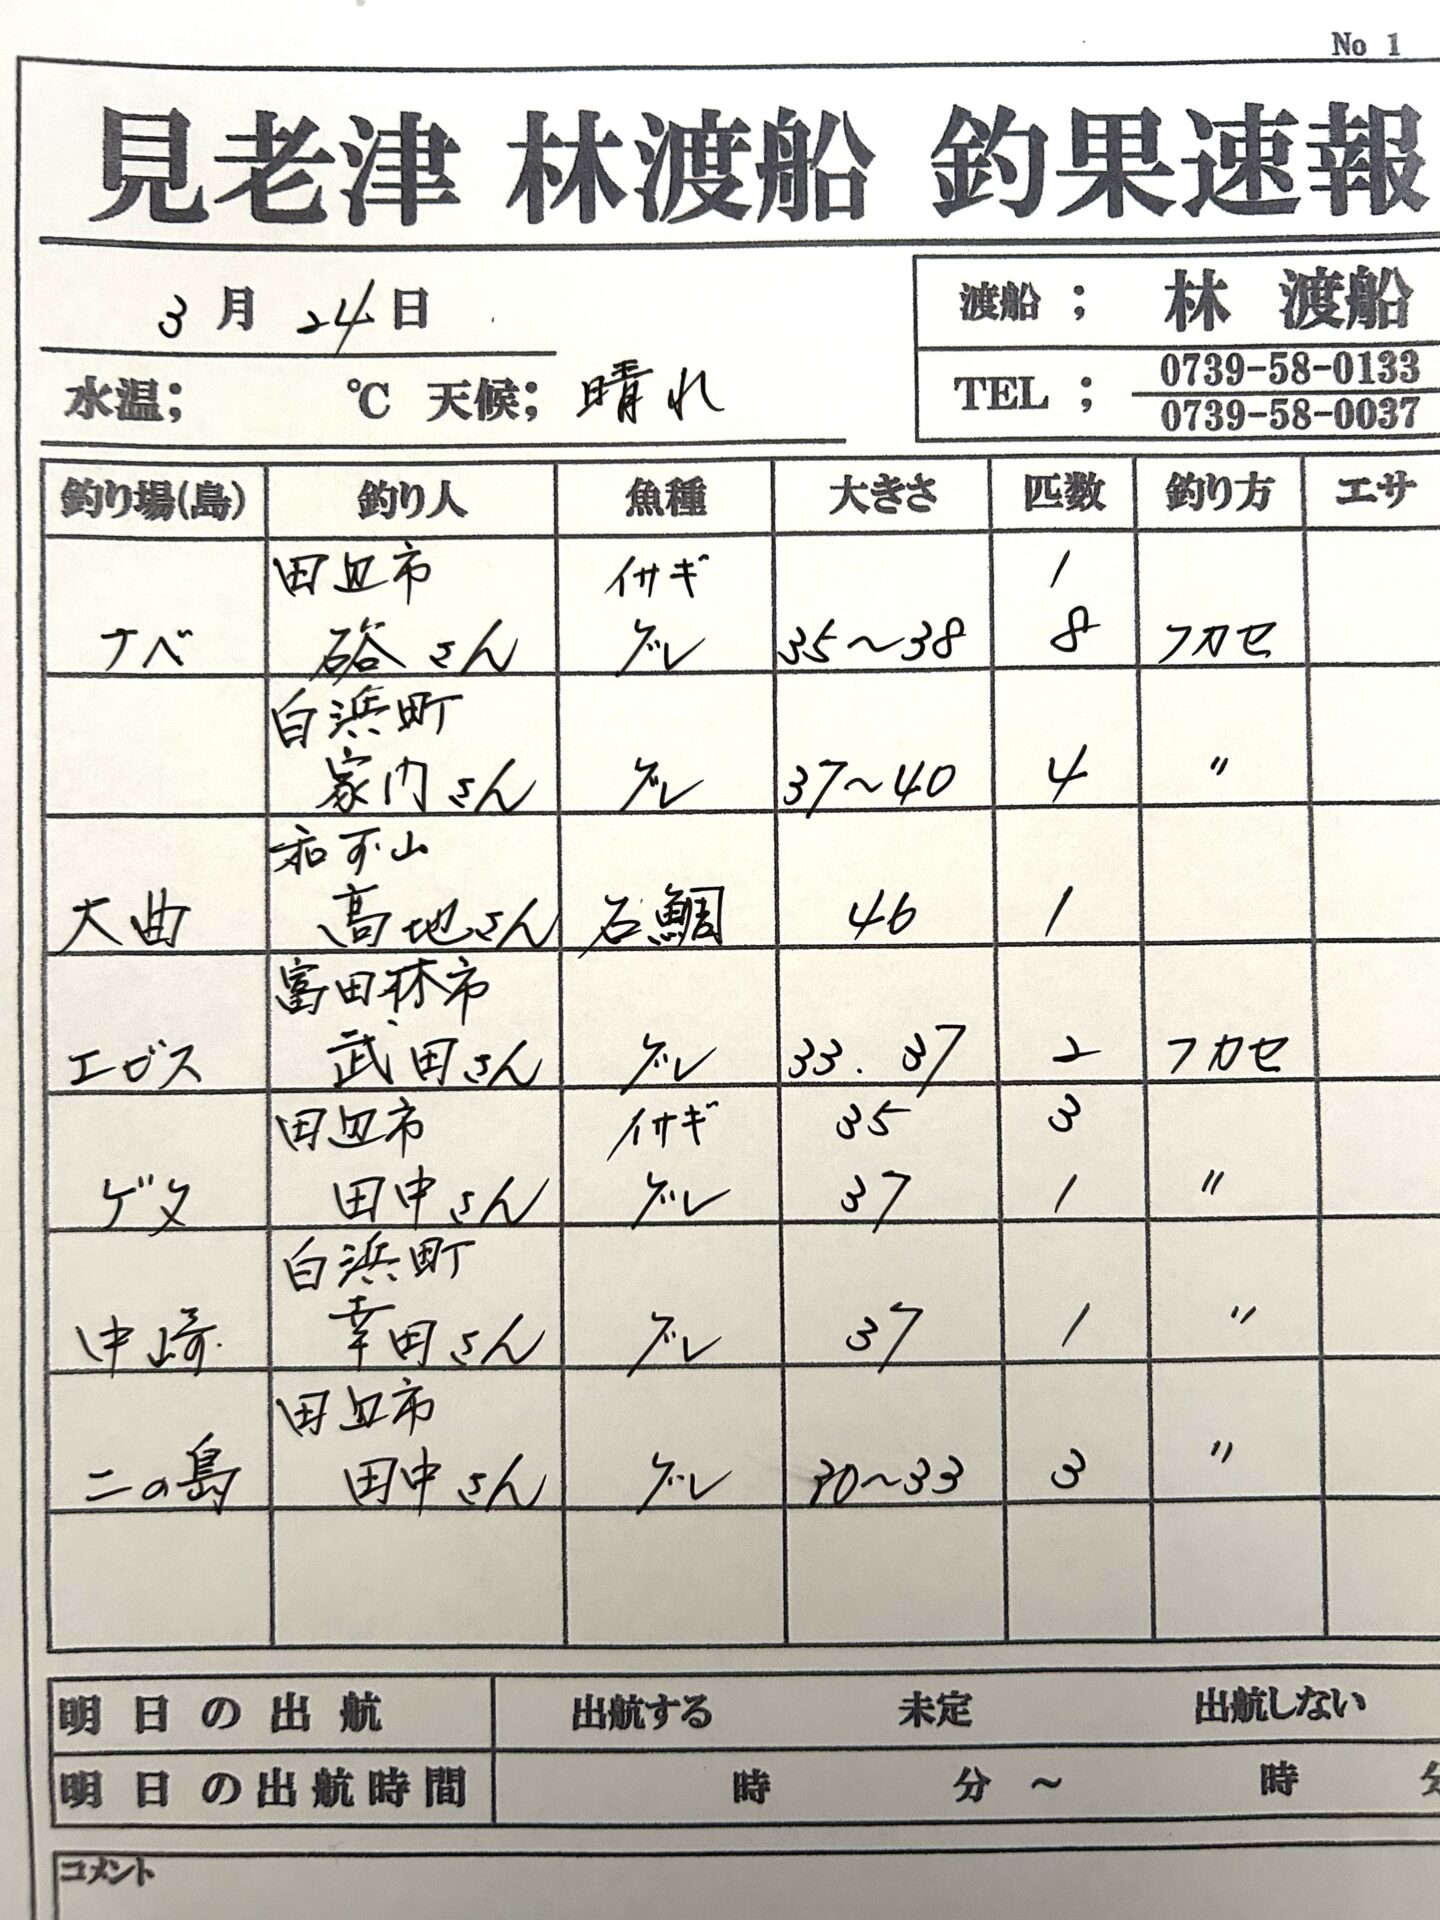 No 1
見老津 林渡船 釣果速報
3月 24日
渡船 ; 林 渡船
水温; ℃ 天候; 晴れ
TEL ; 0739-58-0133
0739-58-0037
釣り場(島) 釣り人 魚種 大きさ 匹数 釣り方 エサ
田辺市 イサギ 1
ナベ 硲さん グレ 35~38 8 フカセ
白浜町
家内さん グレ 37~40 4 〃
和歌山
大曲 高地さん 石鯛 46 1
富田林市
エビス 武田さん グレ 33. 37 2 フカセ
田辺市 イサギ 35 3
ゲタ 田中さん グレ 37 1 〃
白浜町
中崎 幸田さん グレ 37 1 〃
田辺市
二の島 田中さん グレ 30~33 3 〃
明日の出航 出航する 未定 出航しない
明日の出航時間 時 分 ~ 時 分
コメント